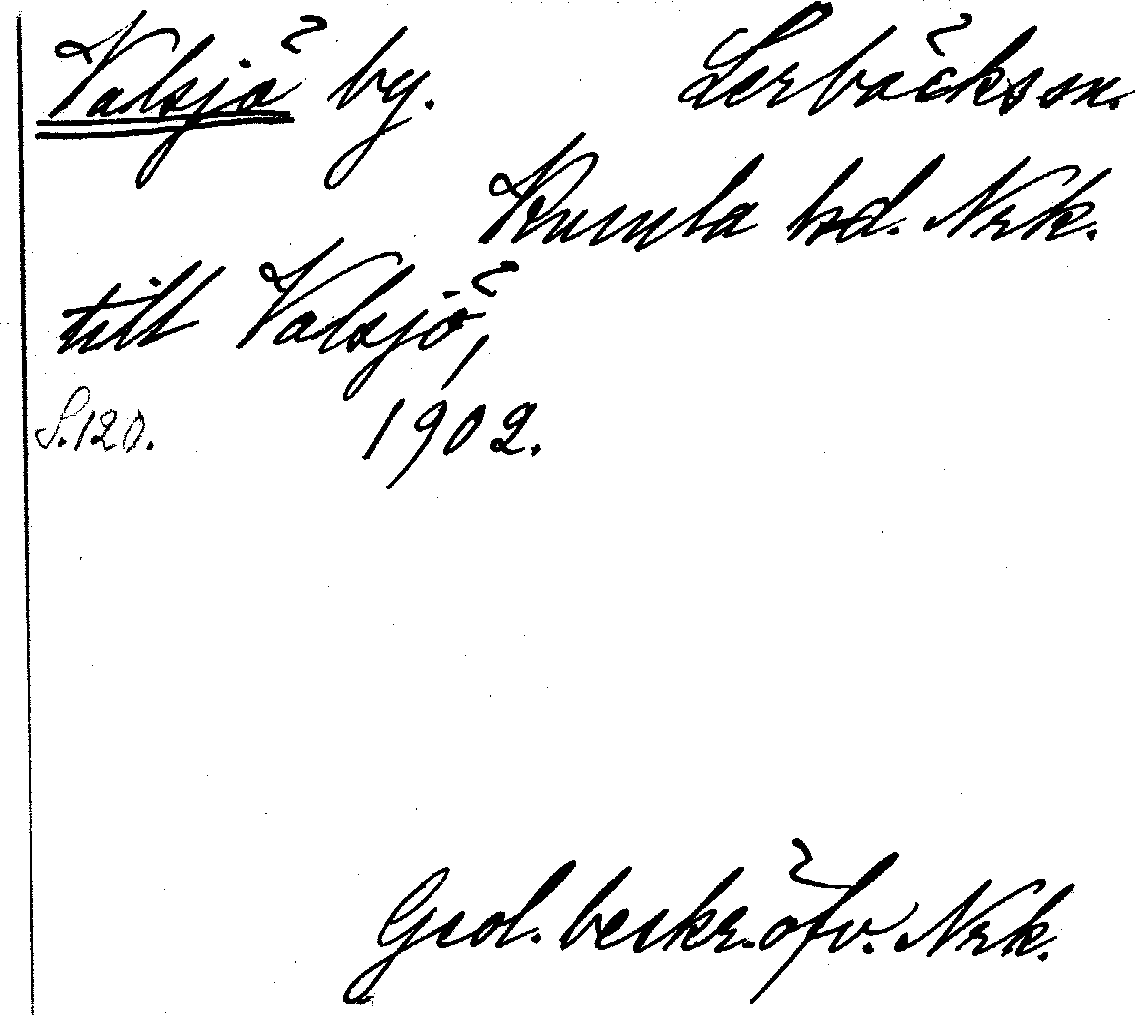 Valsjö by. Lerbäcks sn.
Kumla hd. Nrk.
till Valsjö,
S. 120. 1902.
Geol. beskr. öfv. Nrk.